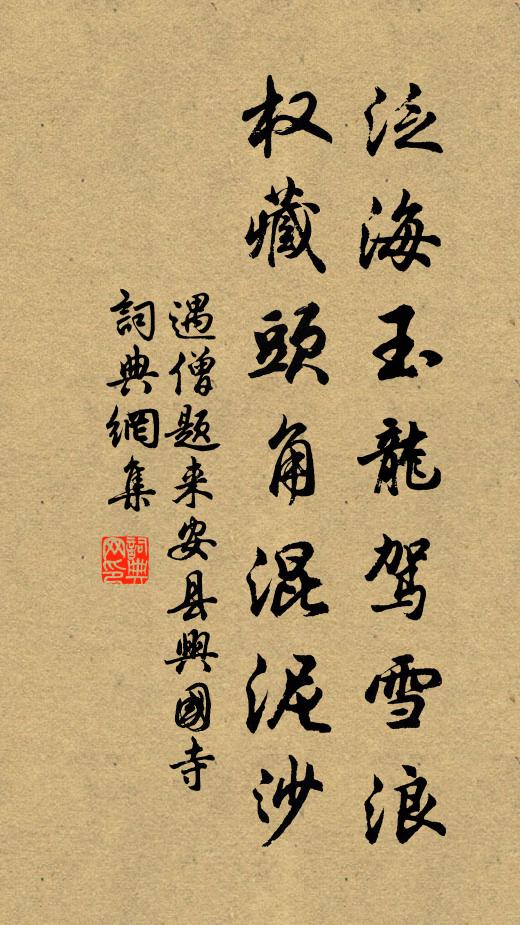 泛海玉龍駕雪浪
权藏頭角混泥沙
遇僧题来安县興國寺
詞典網集
詞典网印